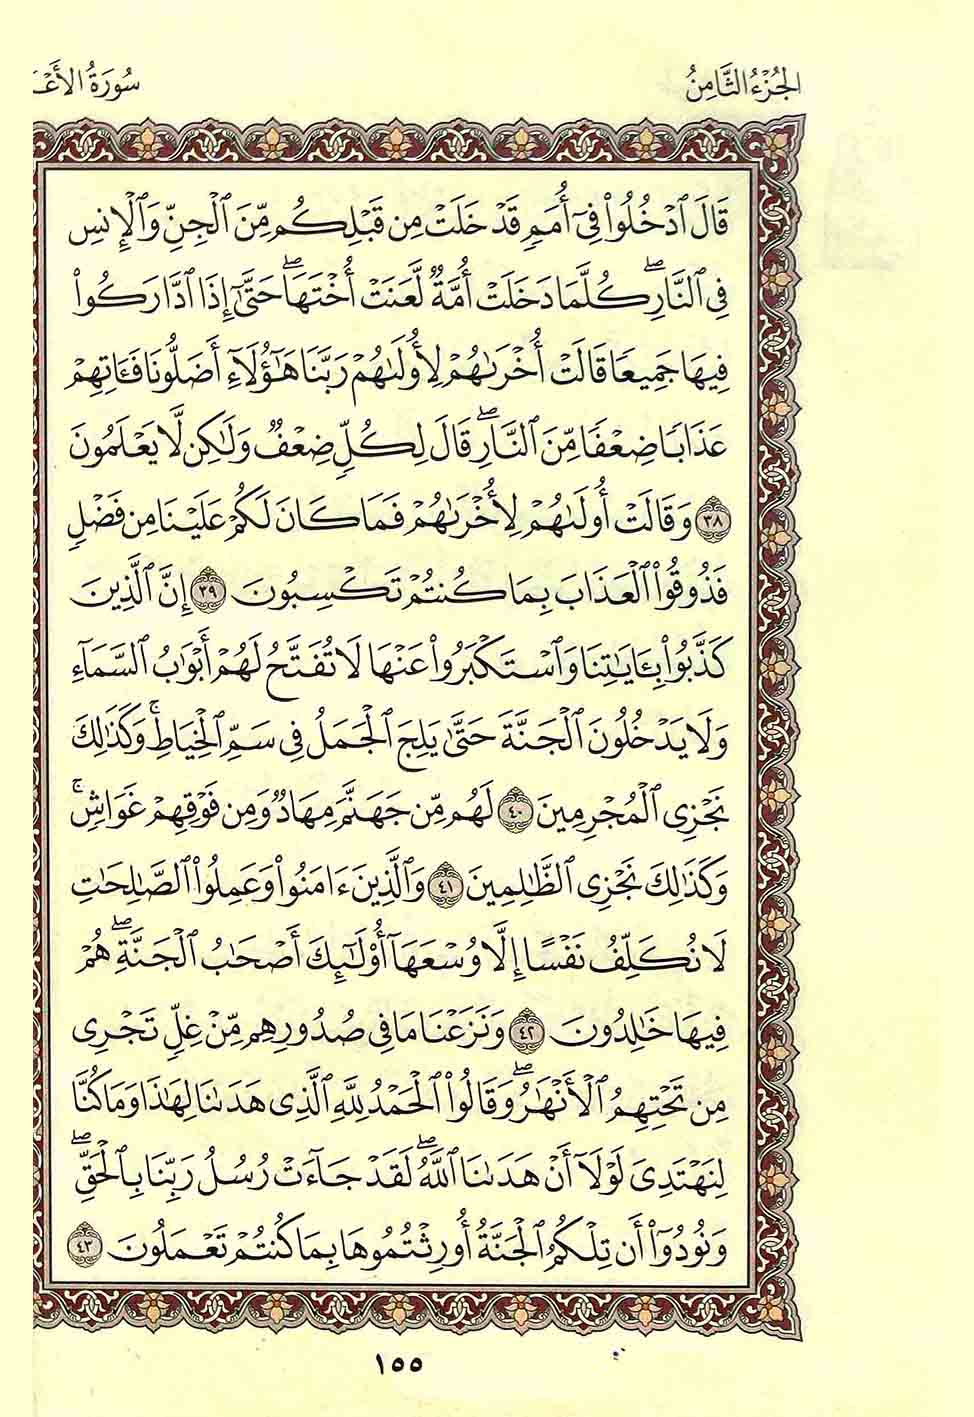 الجُزْءُ الثَّامِنُ
سُورَةُ الأَعْـ
قَالَ ٱدۡخُلُواْ فِيٓ أُمَمٖ قَدۡ خَلَتۡ مِن قَبۡلِكُم مِّنَ ٱلۡجِنِّ وَٱلۡإِنسِ
فِي ٱلنَّارِۖ كُلَّمَا دَخَلَتۡ أُمَّةٞ لَّعَنَتۡ أُخۡتَهَاۖ حَتَّىٰٓ إِذَا ٱدَّارَكُواْ
فِيهَا جَمِيعٗا قَالَتۡ أُخۡرَىٰهُمۡ لِأُولَىٰهُمۡ رَبَّنَا هَٰٓؤُلَآءِ أَضَلُّونَا فَـَٔاتِهِمۡ
عَذَابٗا ضِعۡفٗا مِّنَ ٱلنَّارِۖ قَالَ لِكُلّٖ ضِعۡفٞ وَلَٰكِن لَّا يَعۡلَمُونَ
٣٨ وَقَالَتۡ أُولَىٰهُمۡ لِأُخۡرَىٰهُمۡ فَمَا كَانَ لَكُمۡ عَلَيۡنَا مِن فَضۡلٖ
فَذُوقُواْ ٱلۡعَذَابَ بِمَا كُنتُمۡ تَكۡسِبُونَ ٣٩ إِنَّ ٱلَّذِينَ
كَذَّبُواْ بِـَٔايَٰتِنَا وَٱسۡتَكۡبَرُواْ عَنۡهَا لَا تُفَتَّحُ لَهُمۡ أَبۡوَٰبُ ٱلسَّمَآءِ
وَلَا يَدۡخُلُونَ ٱلۡجَنَّةَ حَتَّىٰ يَلِجَ ٱلۡجَمَلُ فِي سَمِّ ٱلۡخِيَاطِۚ وَكَذَٰلِكَ
نَجۡزِي ٱلۡمُجۡرِمِينَ ٤٠ لَهُم مِّن جَهَنَّمَ مِهَادٞ وَمِن فَوۡقِهِمۡ غَوَاشٖۚ
وَكَذَٰلِكَ نَجۡزِي ٱلظَّٰلِمِينَ ٤١ وَٱلَّذِينَ ءَامَنُواْ وَعَمِلُواْ ٱلصَّٰلِحَٰتِ
لَا نُكَلِّفُ نَفۡسًا إِلَّا وُسۡعَهَآ أُوْلَٰٓئِكَ أَصۡحَٰبُ ٱلۡجَنَّةِۖ هُمۡ
فِيهَا خَٰلِدُونَ ٤٢ وَنَزَعۡنَا مَا فِي صُدُورِهِم مِّنۡ غِلّٖ تَجۡرِي
مِن تَحۡتِهِمُ ٱلۡأَنۡهَٰرُۖ وَقَالُواْ ٱلۡحَمۡدُ لِلَّهِ ٱلَّذِي هَدَىٰنَا لِهَٰذَا وَمَا كُنَّا
لِنَهۡتَدِيَ لَوۡلَآ أَنۡ هَدَىٰنَا ٱللَّهُۖ لَقَدۡ جَآءَتۡ رُسُلُ رَبِّنَا بِٱلۡحَقِّۖ
وَنُودُوٓاْ أَن تِلۡكُمُ ٱلۡجَنَّةُ أُورِثۡتُمُوهَا بِمَا كُنتُمۡ تَعۡمَلُونَ ٤٣
١٥٥